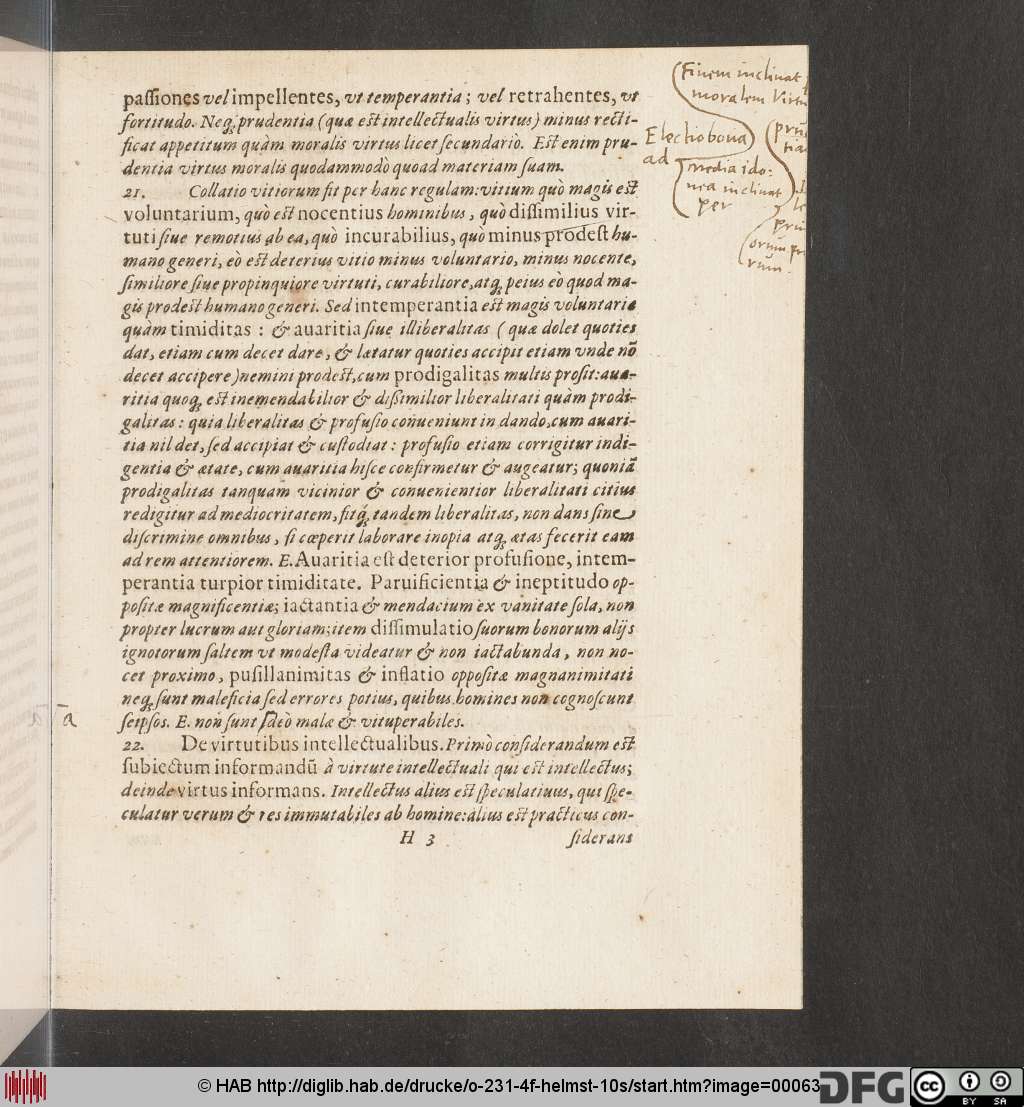 paſſiones vel impellentes, vt temperantia; vel retrahentes, vt
fortitudo. Neq; prudentia (quæ est intellectualis virtus) minus recti-
ficat appetitum quàm moralis virtus licet ſecundariò. Est enim pru-
dentia virtus moralis quodammodò quoad materiam ſuam.
21. Collatio vitiorum fit per hanc regulam: vitium quò magis est
voluntarium, quò est nocentius hominibus, quò diſſimilius vir-
tuti ſiue remotius ab ea, quò incurabilius, quò minus prodeſt hu-
mano generi, eò est deterius vitio minus voluntario, minus nocente,
ſimiliore ſiue propinquiore virtuti, curabiliore, atq; peius eò quod ma-
gis prodest humano generi. Sed intemperantia est magis voluntaria
quàm timiditas: & auaritia ſiue illiberalitas (quæ dolet quoties
dat, etiam cum decet dare, & lætatur quoties accipit etiam vnde nō
decet accipere) nemini prodest, cum prodigalitas multis proſit: aua-
ritia quoq; est inemendabilior & diſsimilior liberalitati quàm prodi-
galitas: quia liberalitas & profuſio conueniunt in dando, cum auari-
tia nil det, ſed accipiat & cuſtodiat: profuſio etiam corrigitur indi-
gentia & ætate, cum auaritia hiſce confirmetur & augeatur; quoniā
prodigalitas tanquam vicinior & conuenientior liberalitati citius
redigitur ad mediocritatem, fitq́; tandem liberalitas, non dans ſine
diſcrimine omnibus, ſi cœperit laborare inopia atq; ætas fecerit eam
ad rem attentiorem. E. Auaritia eſt deterior profuſione, intem-
perantia turpior timiditate. Paruificientia & ineptitudo op-
poſitæ magnificentiæ; iactantia & mendacium ex vanitate ſola, non
propter lucrum aut gloriam; item diſſimulatio ſuorum bonorum alijs
ignotorum ſaltem vt modeſta videatur & non iactabunda, non no-
cet proximo, puſillanimitas & inflatio oppoſitæ magnanimitati
neq; ſunt maleficia ſed errores potius, quibus homines non cognoſcunt
ſeipſos. E. non ſunt ideò malæ & vituperabiles.
22. De virtutibus intellectualibus. Primò conſiderandum est
ſubiectum informandū à virtute intellectuali qui est intellectus;
deinde virtus informans. Intellectus alius est ſpeculatiuus, qui ſpe-
culatur verum & res immutabiles ab homine: alius est practicus con-
H 3 ſiderans
Finem inclinat
moralem Virtu
Electio bona
ad
media ido:
nea inclinat
per
prū
tia
orum pr
rum.
ā
© HAB http://diglib.hab.de/drucke/o-231-4f-helmst-10s/start.htm?image=00063
DFG
cc
BY SA